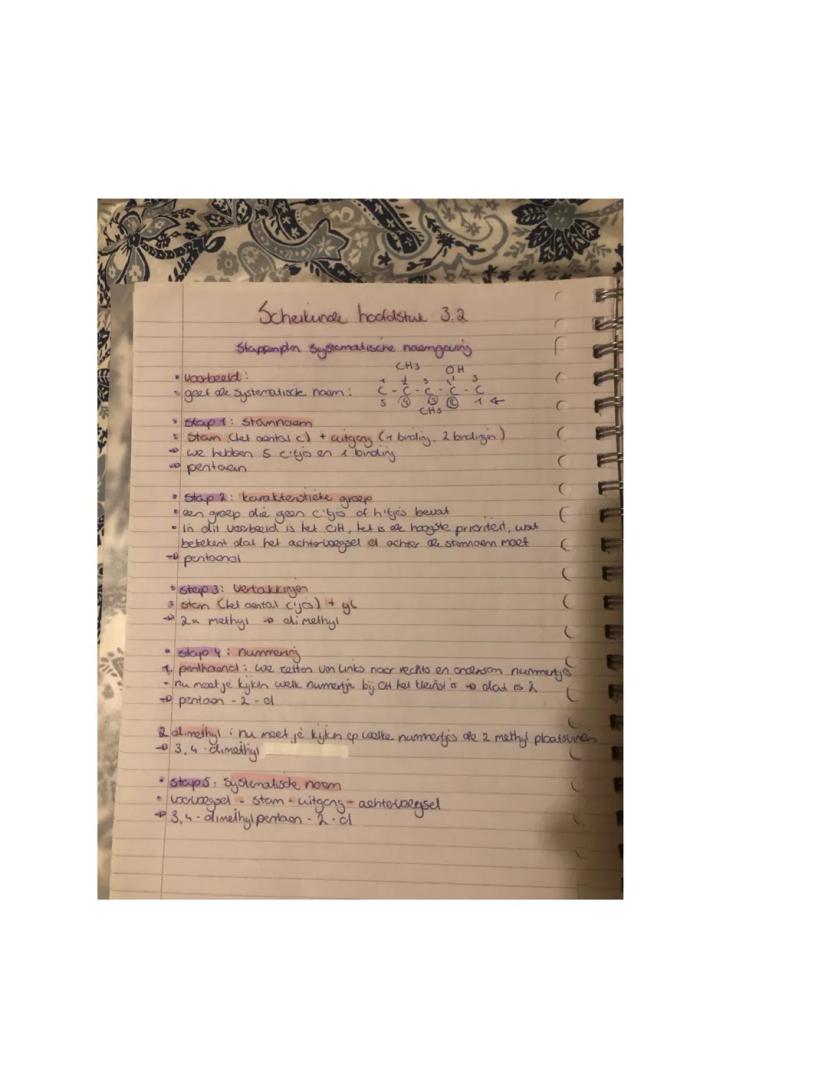 Scheikunde hoofdstuk 3.2
Stappenplan systematische naamgeving
CH3 OH
• voorbeeld: 1 2 3 4 5
• geef de systematische naam: C - C - C - C - C
5 4 3 2 1 ←
CH3
• stap 1: stamnaam
• stam (het aantal c) + uitgang (1 binding, 2 bindingen)
→ we hebben 5 c'tjes en 1 binding
→ pentaan
• stap 2: karakteristieke groep
• een groep die geen c'tjes of h'tjes bevat
• in dit voorbeeld is het OH, het is de hoogste prioriteit, wat
betekent dat het achtervoegsel ol achter de stamnaam moet
→ pentaanol
• stap 3: vertakkingen
• stam (het aantal c'jes) + yl
→ 2x methyl → dimethyl
• stap 4: nummering
1. penthaanol: we zetten van links naar rechts en andersom nummertjes
- nu moet je kijken welk numertje bij OH het kleinst is → dat is 2
→ pentaan - 2 - ol
2. dimethyl: nu moet je kijken op welke nummertjes de 2 methyl plaatsvinen
→ 3,4 - dimethyl
• stap 5: systematische naam
• voorvoegsel - stam - uitgang - achtervoegsel
→ 3,4 - dimethylpentaan - 2 - ol